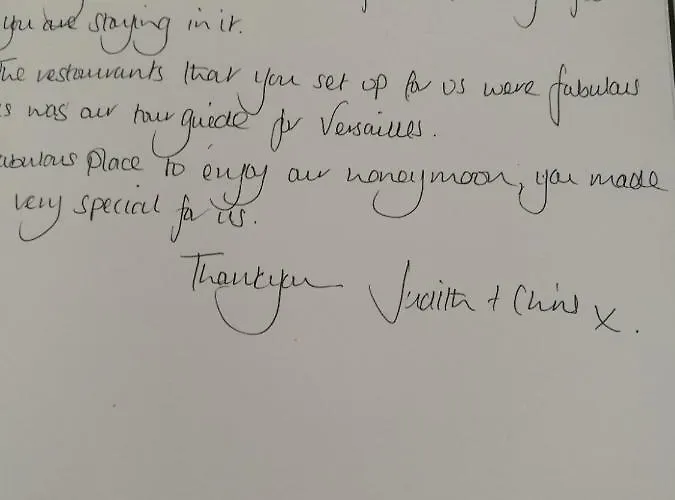 you are staying in it.
The restaurants that you set up for us were fabulous
was our tour guide for Versailles.
Place to enjoy our honeymoon, you made
very special for us.
Thankyou Judith + Chris x.